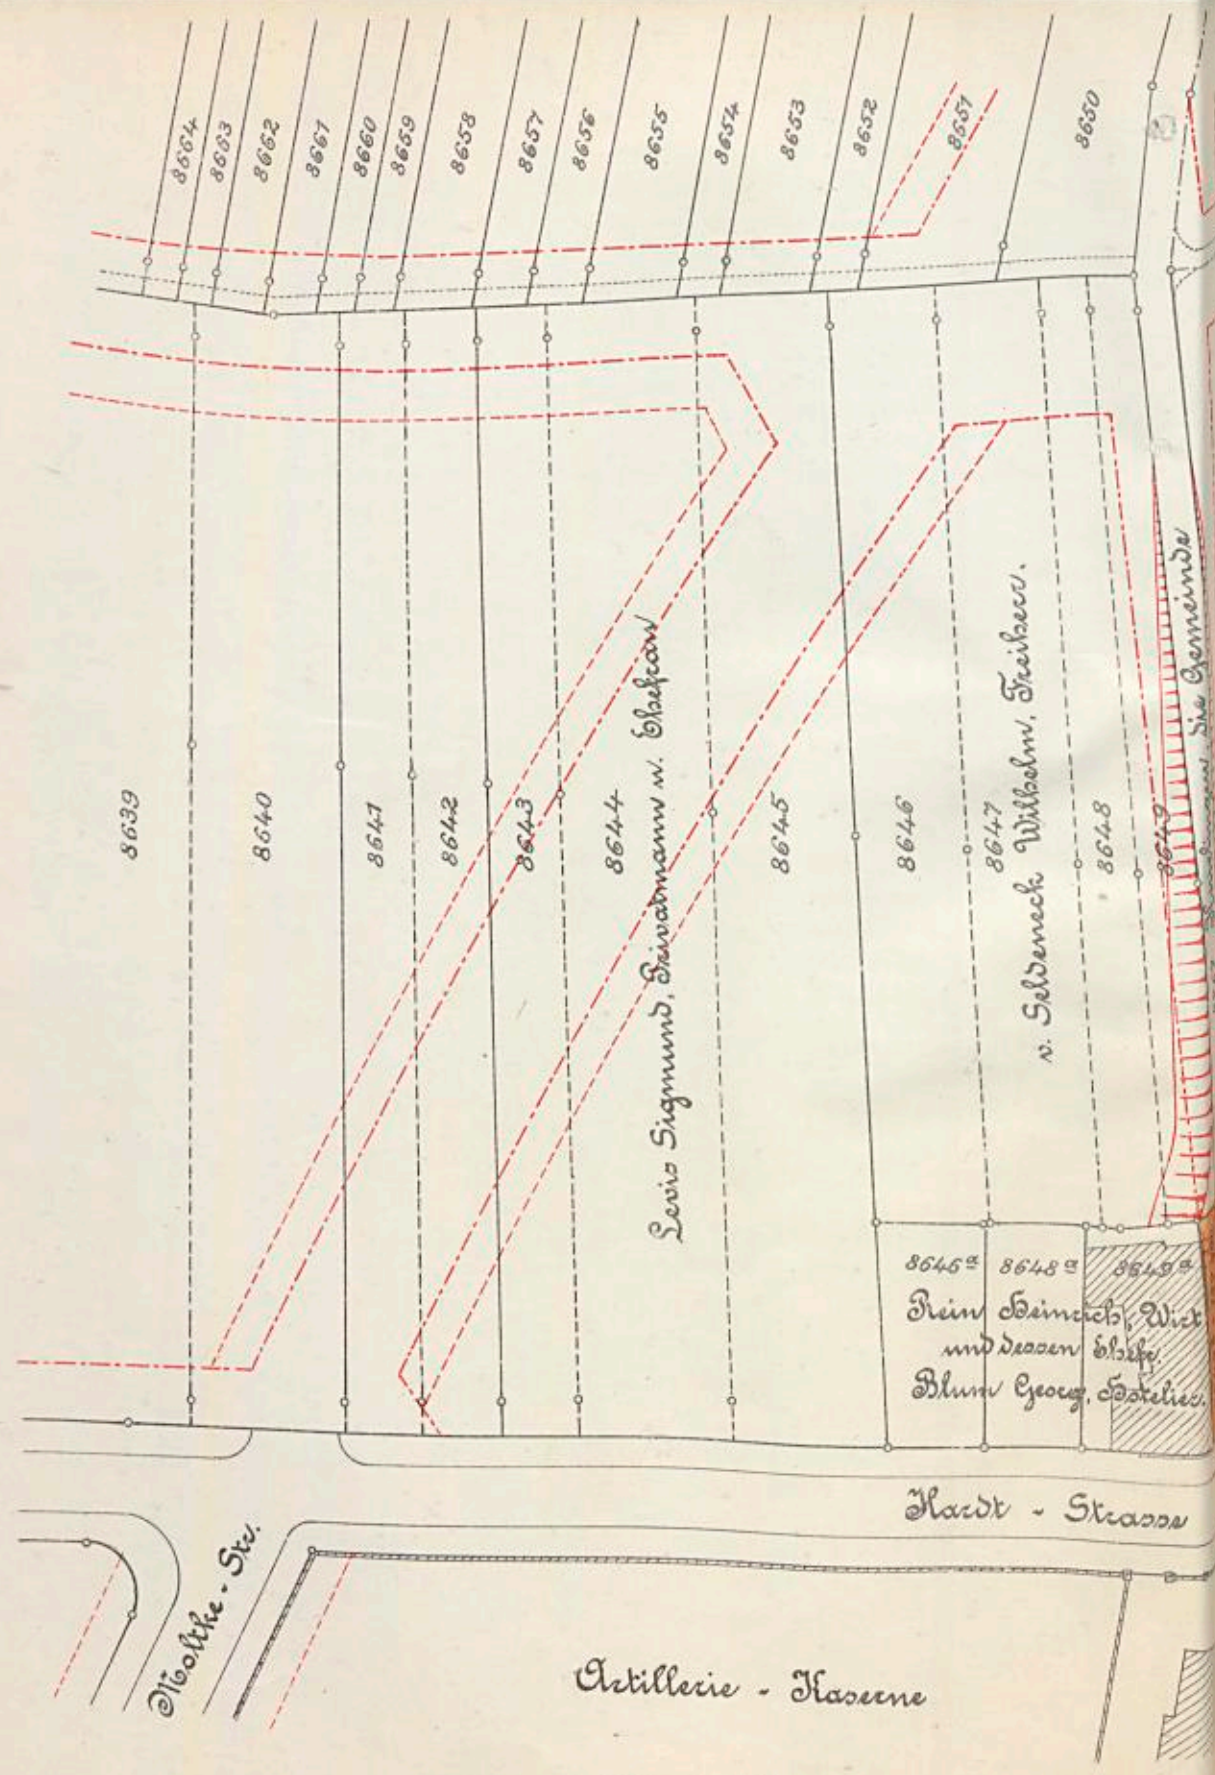 8664
8663
8662
8661
8660
8659
8658
8657
8656
8655
8654
8653
8652
8651
8650
8639
8640
8641
8642
8643
8644
Levis Sigmund, Privatmann u. Ehefrau
8645
8646
8647
v. Seldeneck Wilhelm, Freiherr.
8648
8649
die Gemeinde
8646a
8648a
8649a
Rein Heinrich, Wirt
und dessen Ehefr.
Blum Georg, Hotelier.
Hardt - Strasse
Moltke - Str.
Artillerie - Kaserne